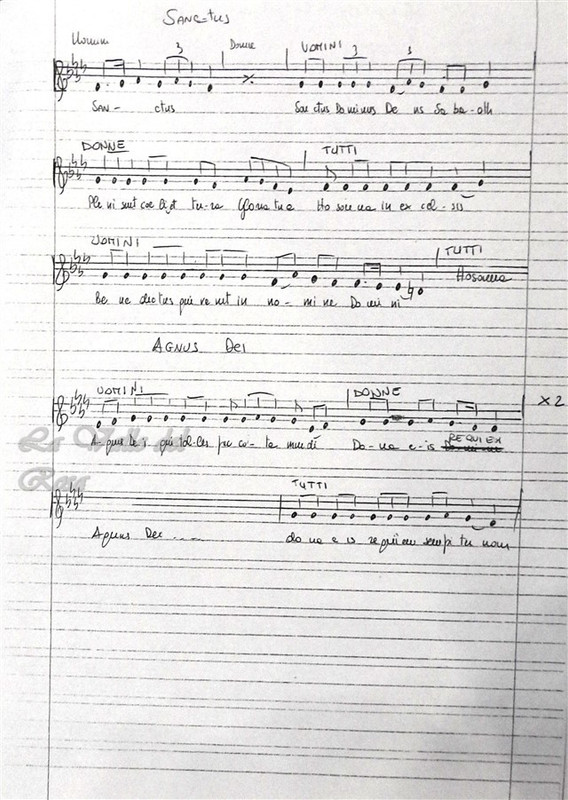 SANCTUS
Uomini 3 Donne UOMINI 3 3
SAN - ctus Sanctus Dominus De us Sa ba - oth
DONNE TUTTI
Ple ni sunt coe li et ter-ra Gloria tua Ho sanna in ex cel - sis
UOMINI TUTTI
Be ne dictus qui ve nit in no - mi ne Do mi ni Hosanna
AGNUS DEI
UOMINI DONNE X2
A - gnus De i qui tol - lis pec ca - ta mundi Do - na e - is REQUIEM
La Valle del
Rava
TUTTI
Agnus Dei ---- do na e is requiem sempi ter nam